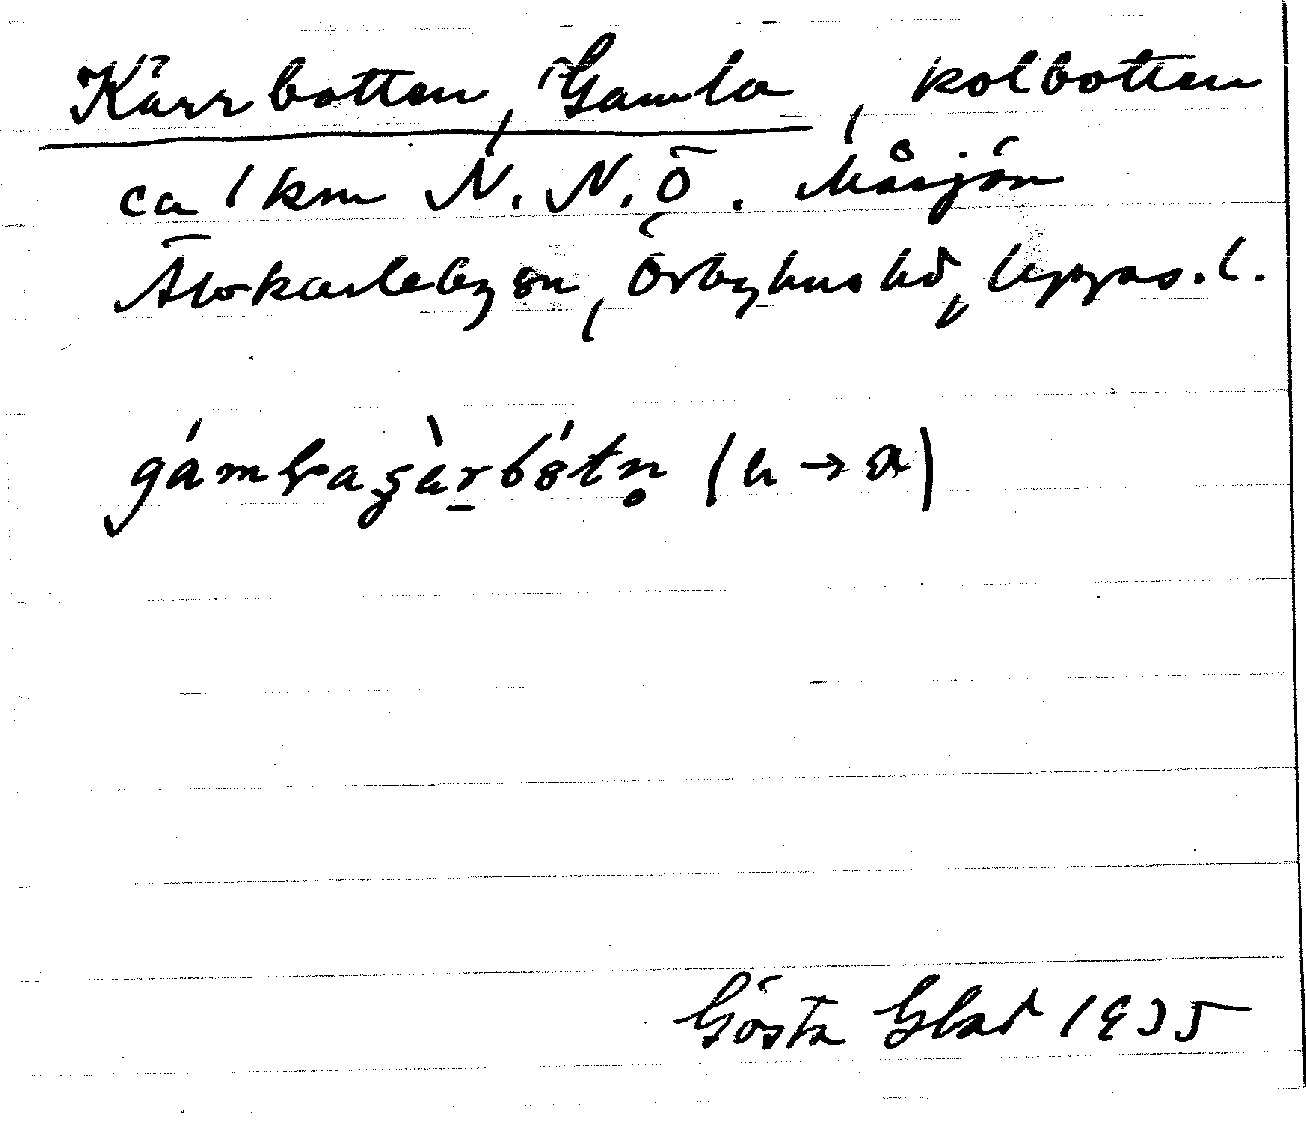 Kärrbotten, Gamla, kolbotten
ca 1 km N.N.Ö. Måsjön
Älvkarleby sn, Örbyhus hd, Uppas. l.
gámbla
Gösta Glad 1935